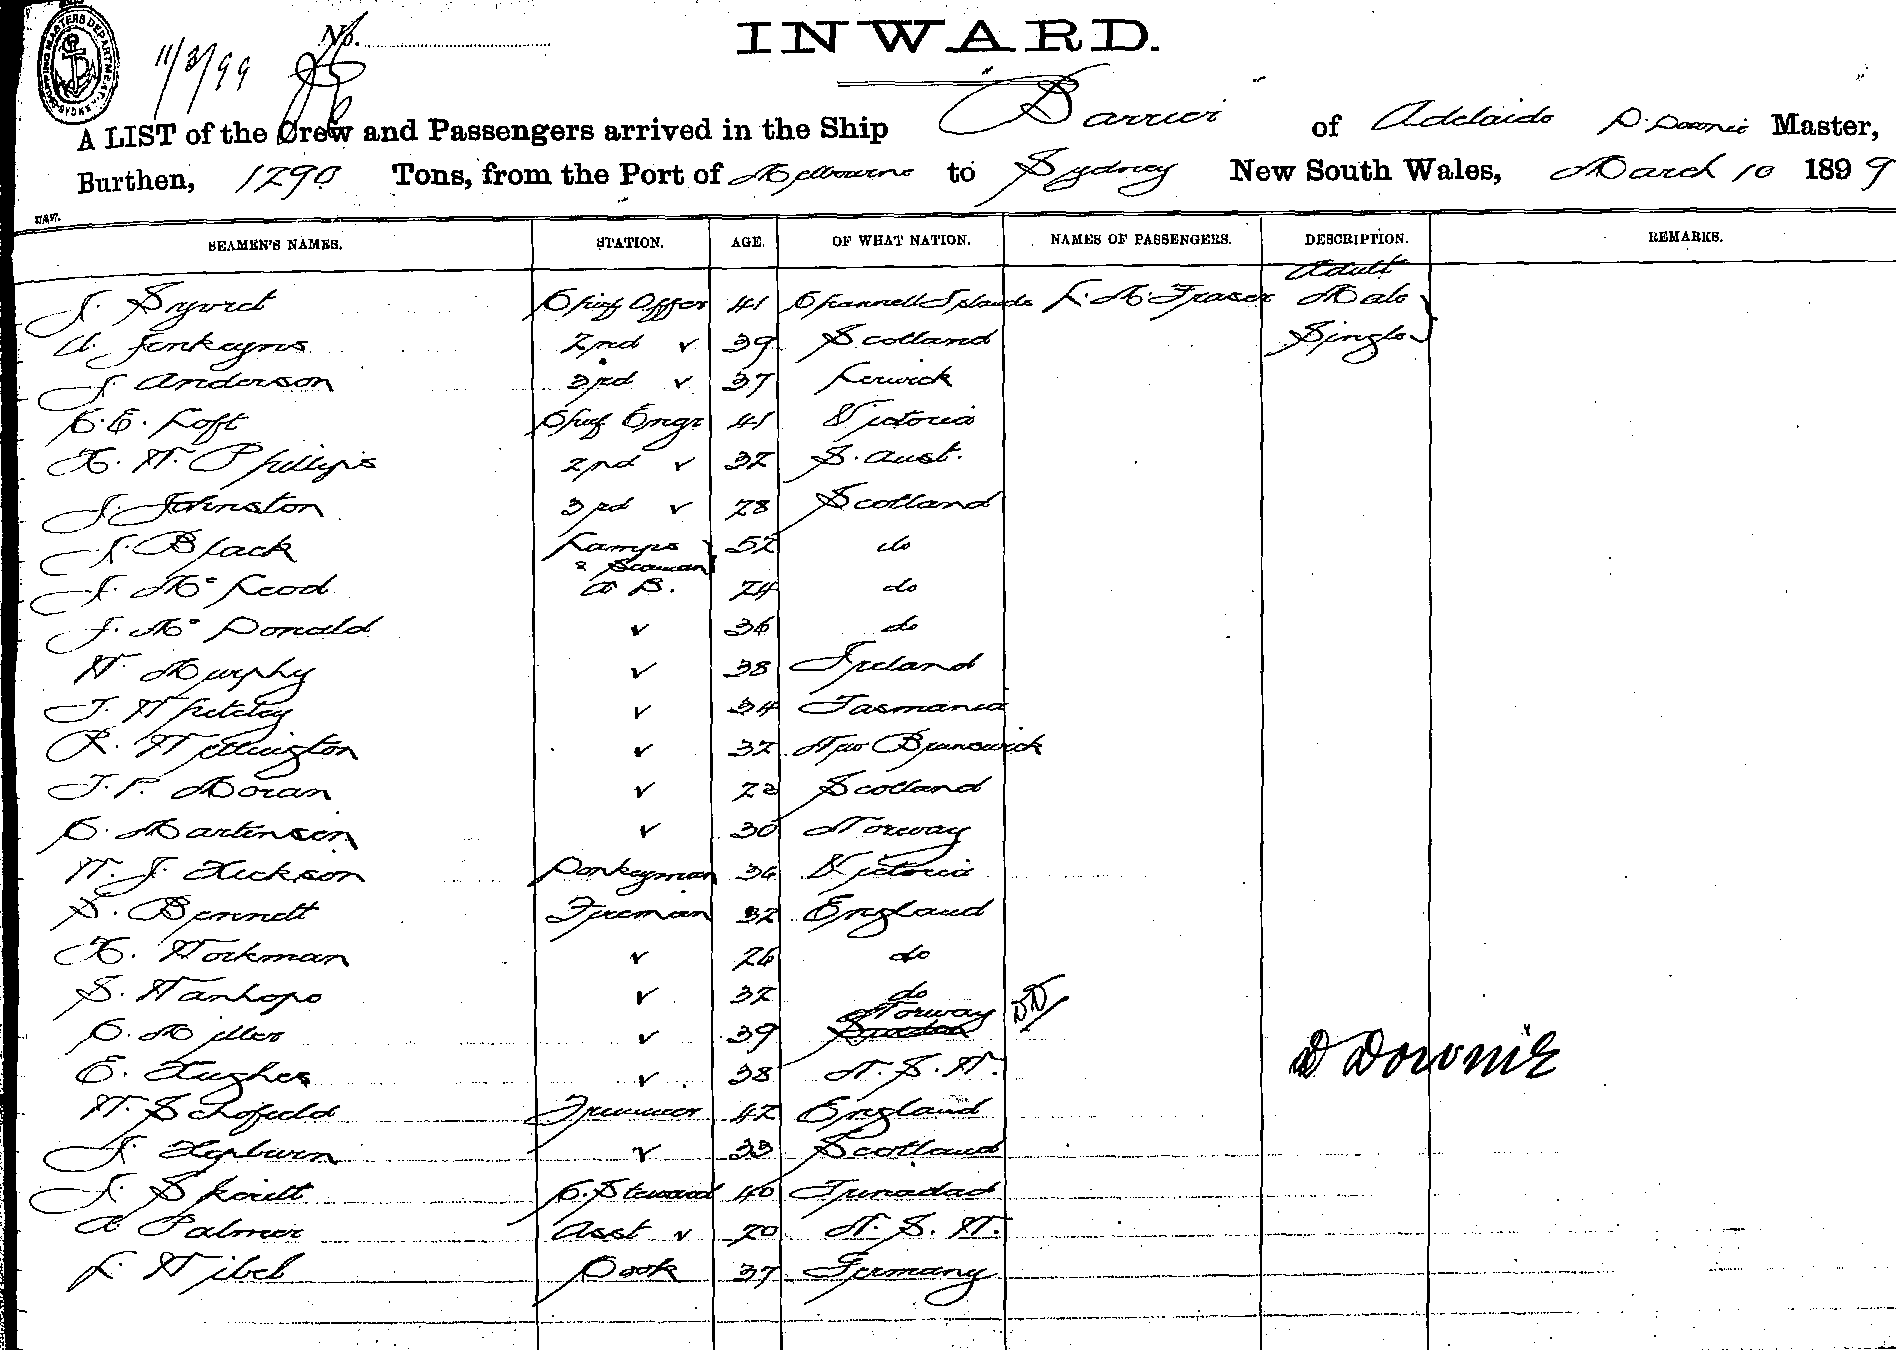 INWARD.
No.
11/3/99
A LIST of the Crew and Passengers arrived in the Ship Barrier of Adelaide D. Downie Master,
Burthen, 1290 Tons, from the Port of Melbourne to Sydney New South Wales, March 10 1899
SEAMEN'S NAMES. STATION. AGE. OF WHAT NATION. NAMES OF PASSENGERS. DESCRIPTION. REMARKS.
Adult
J. Chief Offer 41 Channell Islands L. M. Fraser Male
Single
Jenkeyns 2nd v 39 Scotland
J. Anderson 3rd v 37 Lerwick
C. E. Loft Chief Engr 41 Victoria
H. W. Phillips 2nd v 32 S. Aust.
J. Johnston 3rd v 28 Scotland
J. Black Lamps 52 do
& Seaman
J. Mc Leod A B. 24 do
J. Mc Donald v 36 do
W. Murphy v 38 Ireland
T. Whiteley v 34 Tasmania
R. Wellington v 32 New Brunswick
J. P. Moran v Scotland
C. Martinson v 30 Norway
W. J. Hickson Donkeyman 36 Victoria
S. Bennett Fireman 32 England
H. Workman v 26 do
S. Stanhope v 32 do
Norway DD
C. Miller v 39
E. Hughes v 38 N. S. W.
D Downie
W. Schofield Trimmer 42 England
J. Hepburn v 33 Scotland
J. C. Steward 40 Trinadad
A Palmer Asst v 20 N. S. W.
L. Wibel Cook 37 Germany